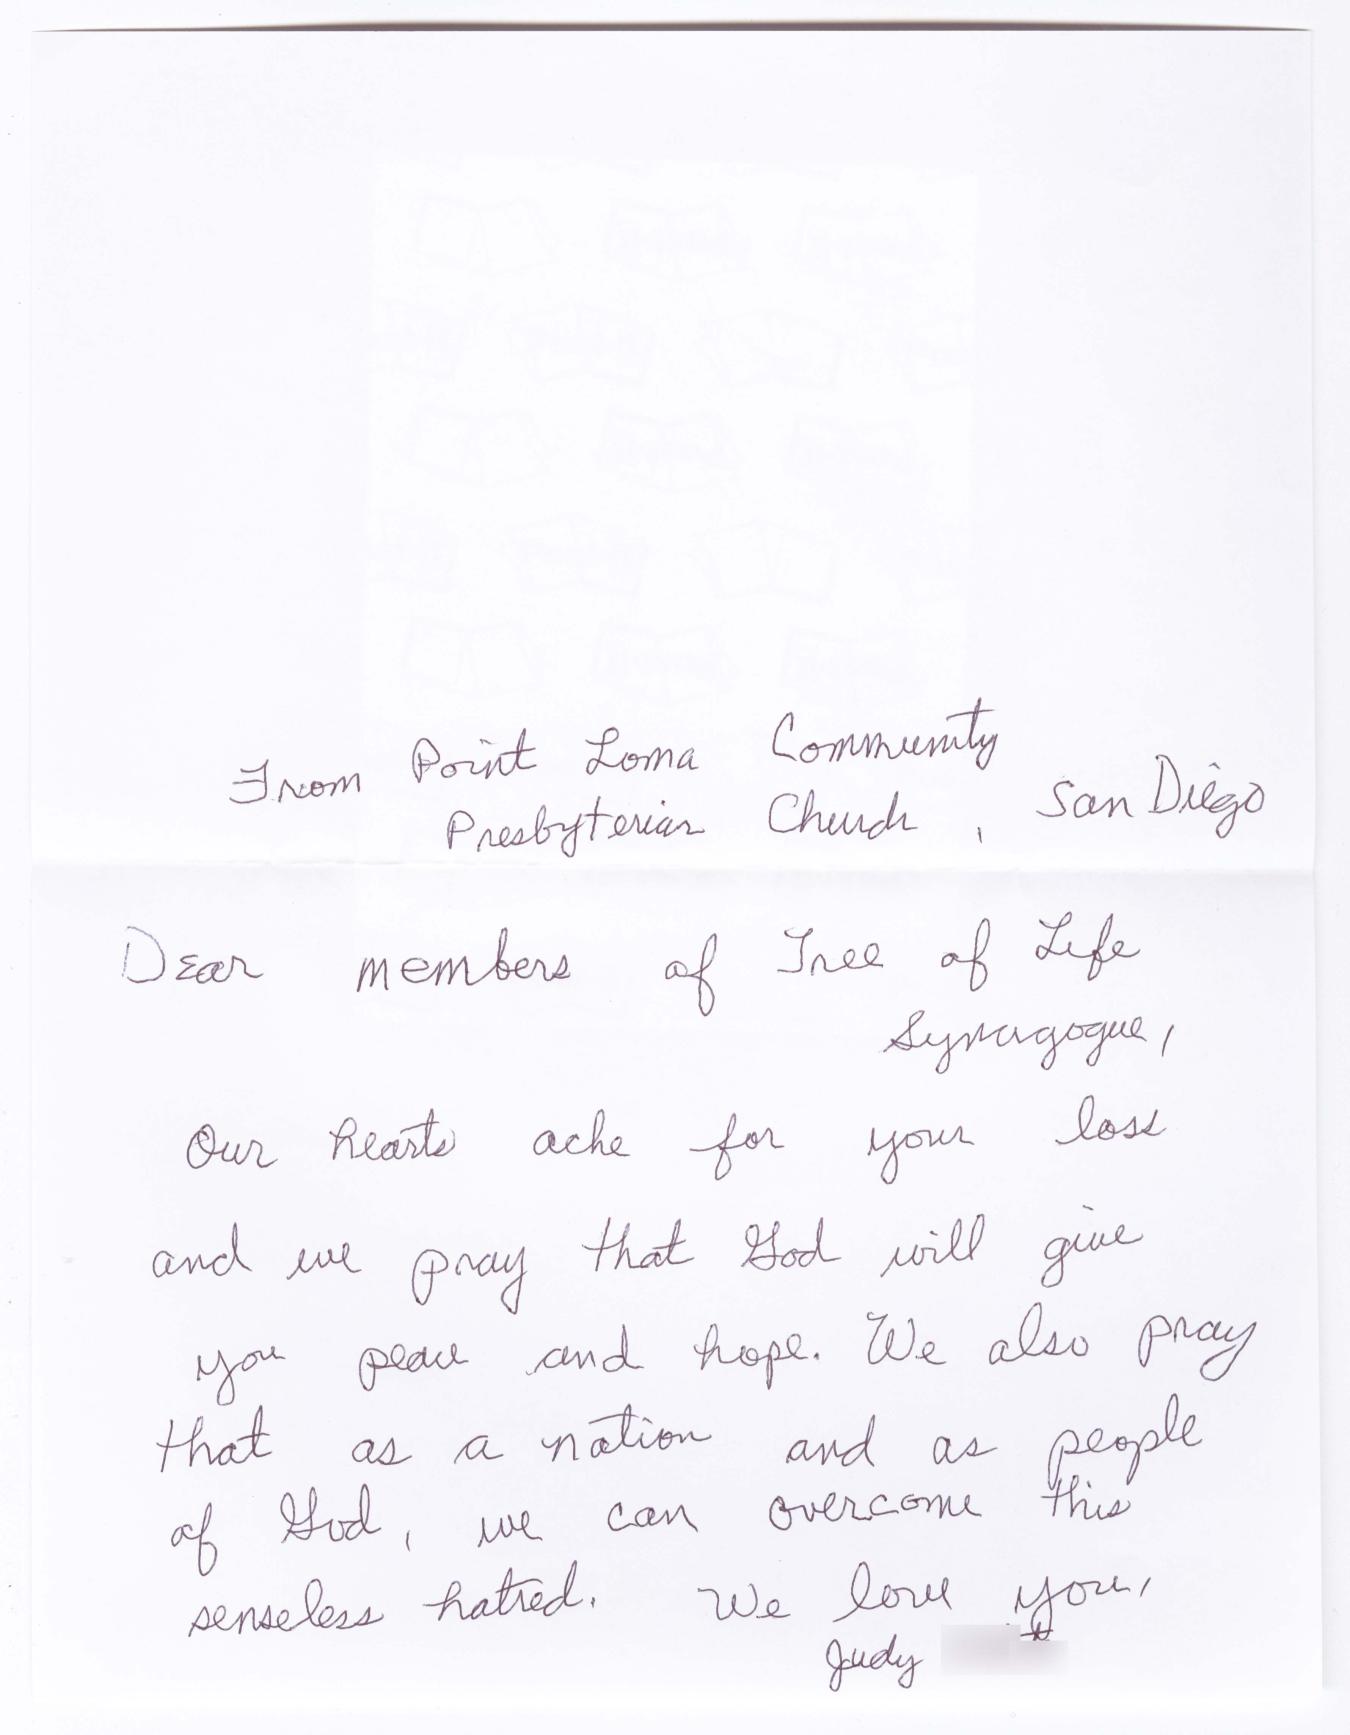 From Point Loma Community
Presbyterian Church, San Diego
Dear members of Tree of Life
Synagogue,
Our hearts ache for your loss
and we pray that God will give
you peace and hope. We also pray
that as a nation and as people
of God, we can overcome this
senseless hatred. We love you,
Judy